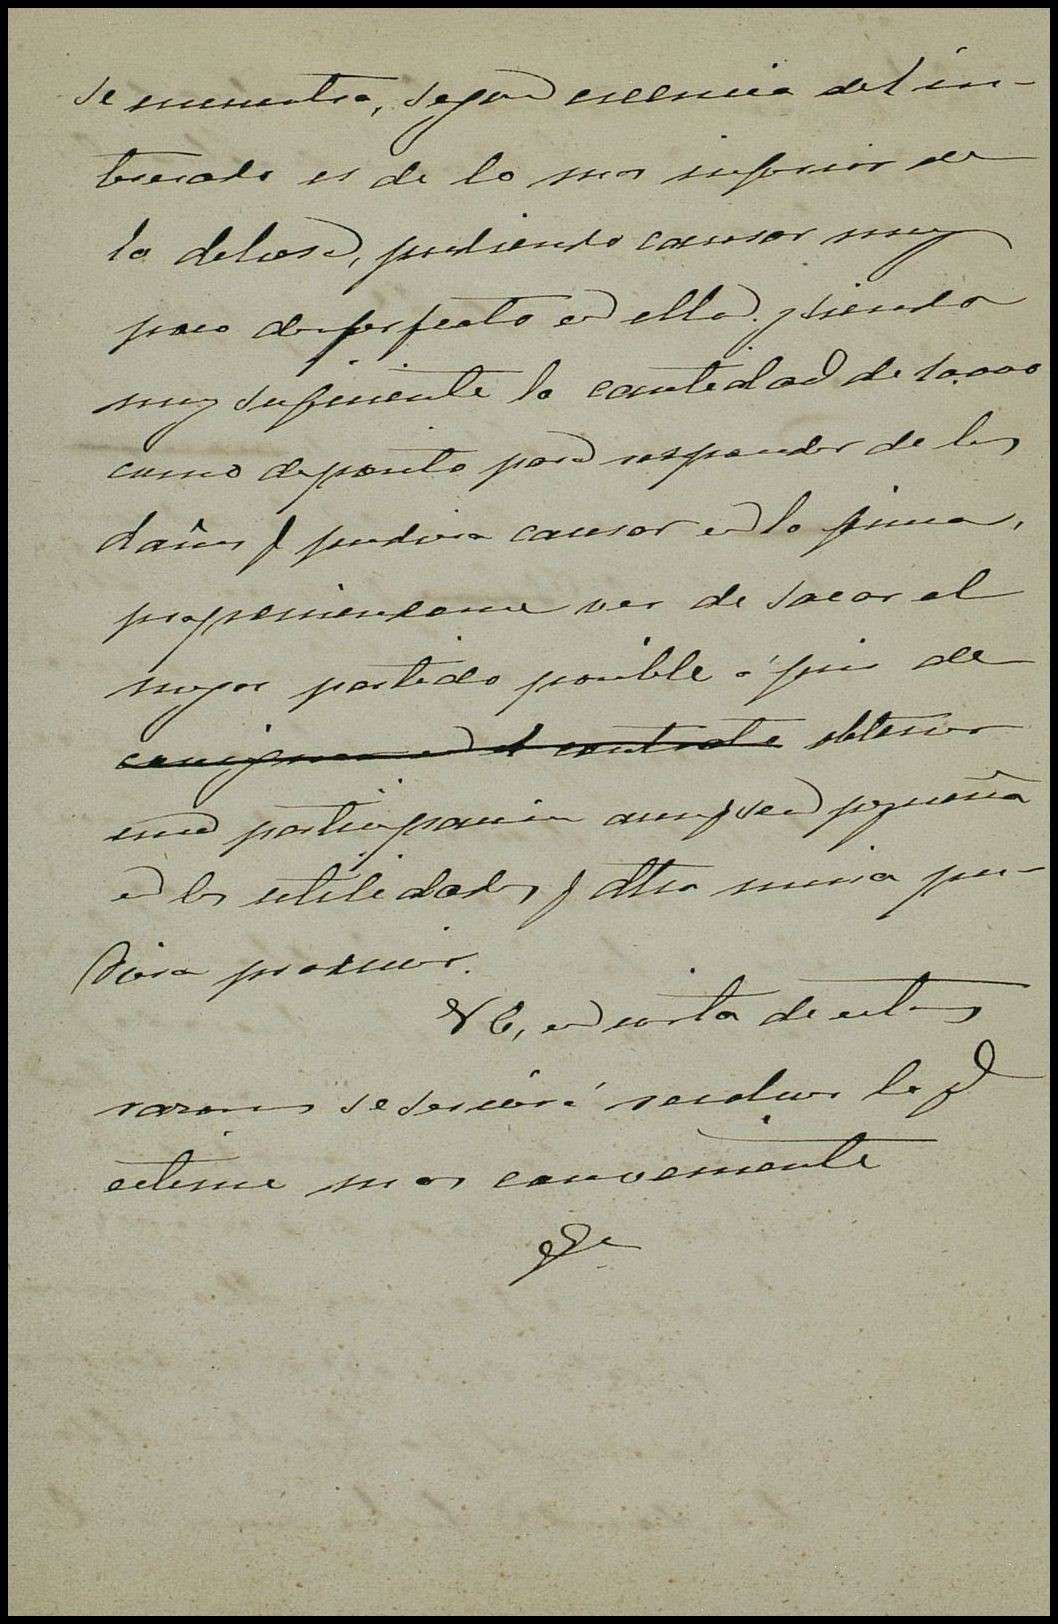 se encuentra, segun creencia del in-
teresado es de lo mas inferior de
la dehesa, pudiendo causar muy
poco desperfecto en ella. y siendo
muy suficiente la cantidad de 10.000
como deposito para responder de los
daños q pudiera causar en la finca,
proponiendome ver de sacar el
mejor partido posible á fin de
consignar en el contrato obtener
una participacion aunq sea pequeña
en las utilidades q dha mina pu-
diera producir.
VE, en vista de estas
razones se servirá resolver lo q
estime mas conveniente